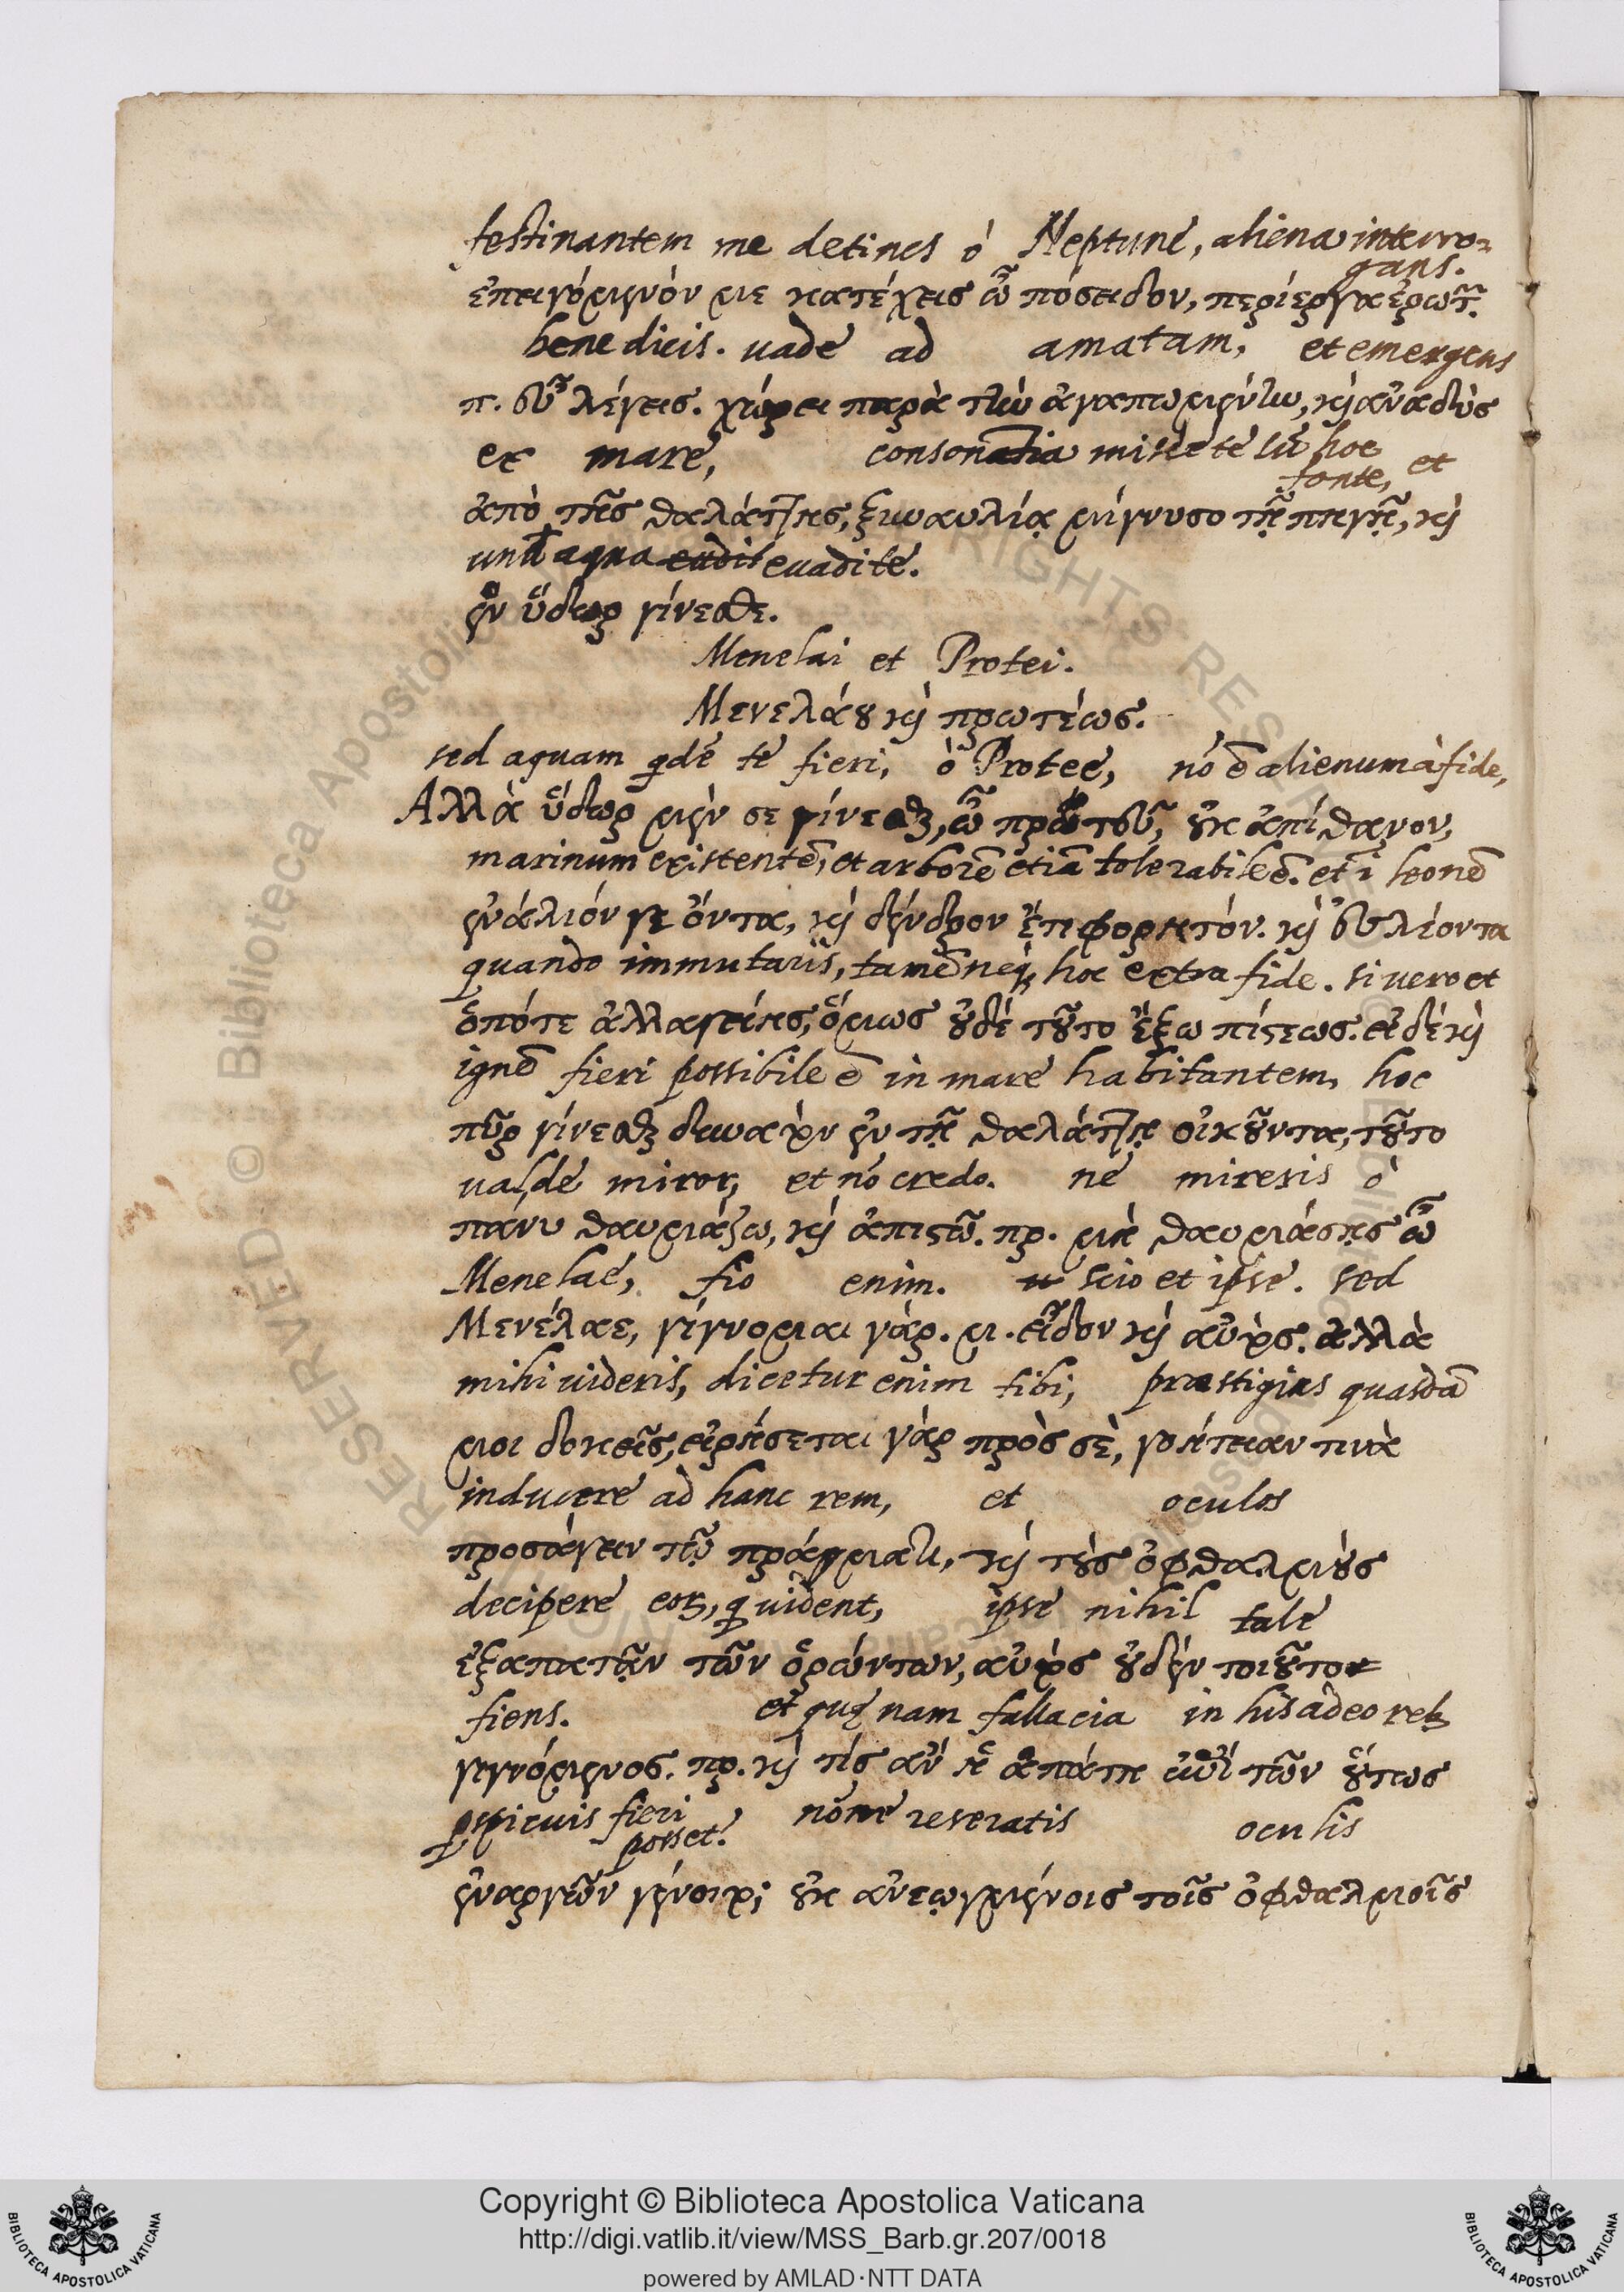 festinantem me detines ò Neptune, aliena interro-
gans.
ἐπειγόμενόν με κατέχεις ὦ πόσειδον, περίεργα ἐρωτῶν.
bene dicis. uade ad amatam, et emergens
π. εὖ λέγεις. χώρει παρὰ τὴν ἀγαπωμένην, καὶ ἀναδὺς
ex mare, consonatia miscete cū hoc
fonte, et
ἀπὸ τῆς θαλάττης, ξυναυλίᾳ μίγνυσο τῇ πηγῇ, καὶ
una aqua euadite.
ἓν ὕδωρ γίνεσθε.
Menelai et Protei.
Μενελάου καὶ πρωτέως.
sed aquam qdē te fieri, ò Protee, nō ē alienum à fide,
Ἀλλὰ ὕδωρ μέν σε γίνεσθαι, ὦ πρωτεῦ, οὐκ ἀπίθανον,
marinum existentē, et arborē etiā tolerabile ē. et ī leonē
ἐνάλιόν γε ὄντα, καὶ δένδρον ἔτι φορητόν. καὶ εἰς λέοντα
quando immutariis, tamē neq; hoc extra fide. si uero et
ὁπότε ἀλλαγείης, ὅμως οὐδὲ τοῦτο ἔξω πίστεως. εἰ δὲ καὶ
ignē fieri possibile ē in mare habitantem, hoc
πῦρ γίνεσθαι δυνατὸν ἐν τῇ θαλάττῃ οἰκοῦντα, τοῦτο
ualde miror, et nō credo. ne mireris ò
πάνυ θαυμάζω, καὶ ἀπιστῶ. πρ. μὴ θαυμάσῃς ὦ
Menelae, fio enim. scio et ipse. sed
Μενέλαε, γίγνομαι γάρ. μ. εἶδον καὶ αὐτός. ἀλλὰ
mihi uideris, dicetur enim tibi, præstigias quasdā
μοι δοκεῖς, εἰρήσεται γὰρ πρὸς σὲ, γοητείαν τινὰ
inducere ad hanc rem, et oculos
προσάγειν τῷ πράγματι, καὶ τοὺς ὀφθαλμοὺς
decipere eorum, q uident, ipse nihil tale
ἐξαπατᾷν τῶν ὁρώντων, αὐτὸς οὐδὲν τοιοῦτο
fiens. et quę nam fallacia in his adeo reb
γιγνόμενος. πρ. καὶ τίς ἂν ἡ ἀπάτη ἐπὶ τῶν οὕτως
pspicuis fieri
posset? nōne reseratis oculis
ἐναργῶν γένοιτο; οὐκ ἀνεῳγμένοις τοῖς ὀφθαλμοῖς
Copyright © Biblioteca Apostolica Vaticana
http://digi.vatlib.it/view/MSS_Barb.gr.207/0018
powered by AMLAD·NTT DATA